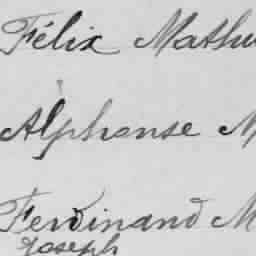 Félix Mathu
Alphonse M
Ferdinand M
Joseph